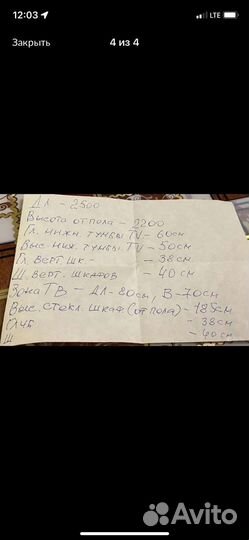 12:03
LTE
Закрыть
4 из 4
Дл - 2500
Высота от пола - 2200
Гл. нижн. тумбы TV - 60см
Выс. ниж. тумбы TV - 50см
Гл. верт. шк. - 38см
Ш. верт. шкафов - 40см
Зона ТВ - Дл - 80см, В - 70см
Выс. стекл. шкаф (от пола) - 185см
- 38см
Ш - 40см
Avito